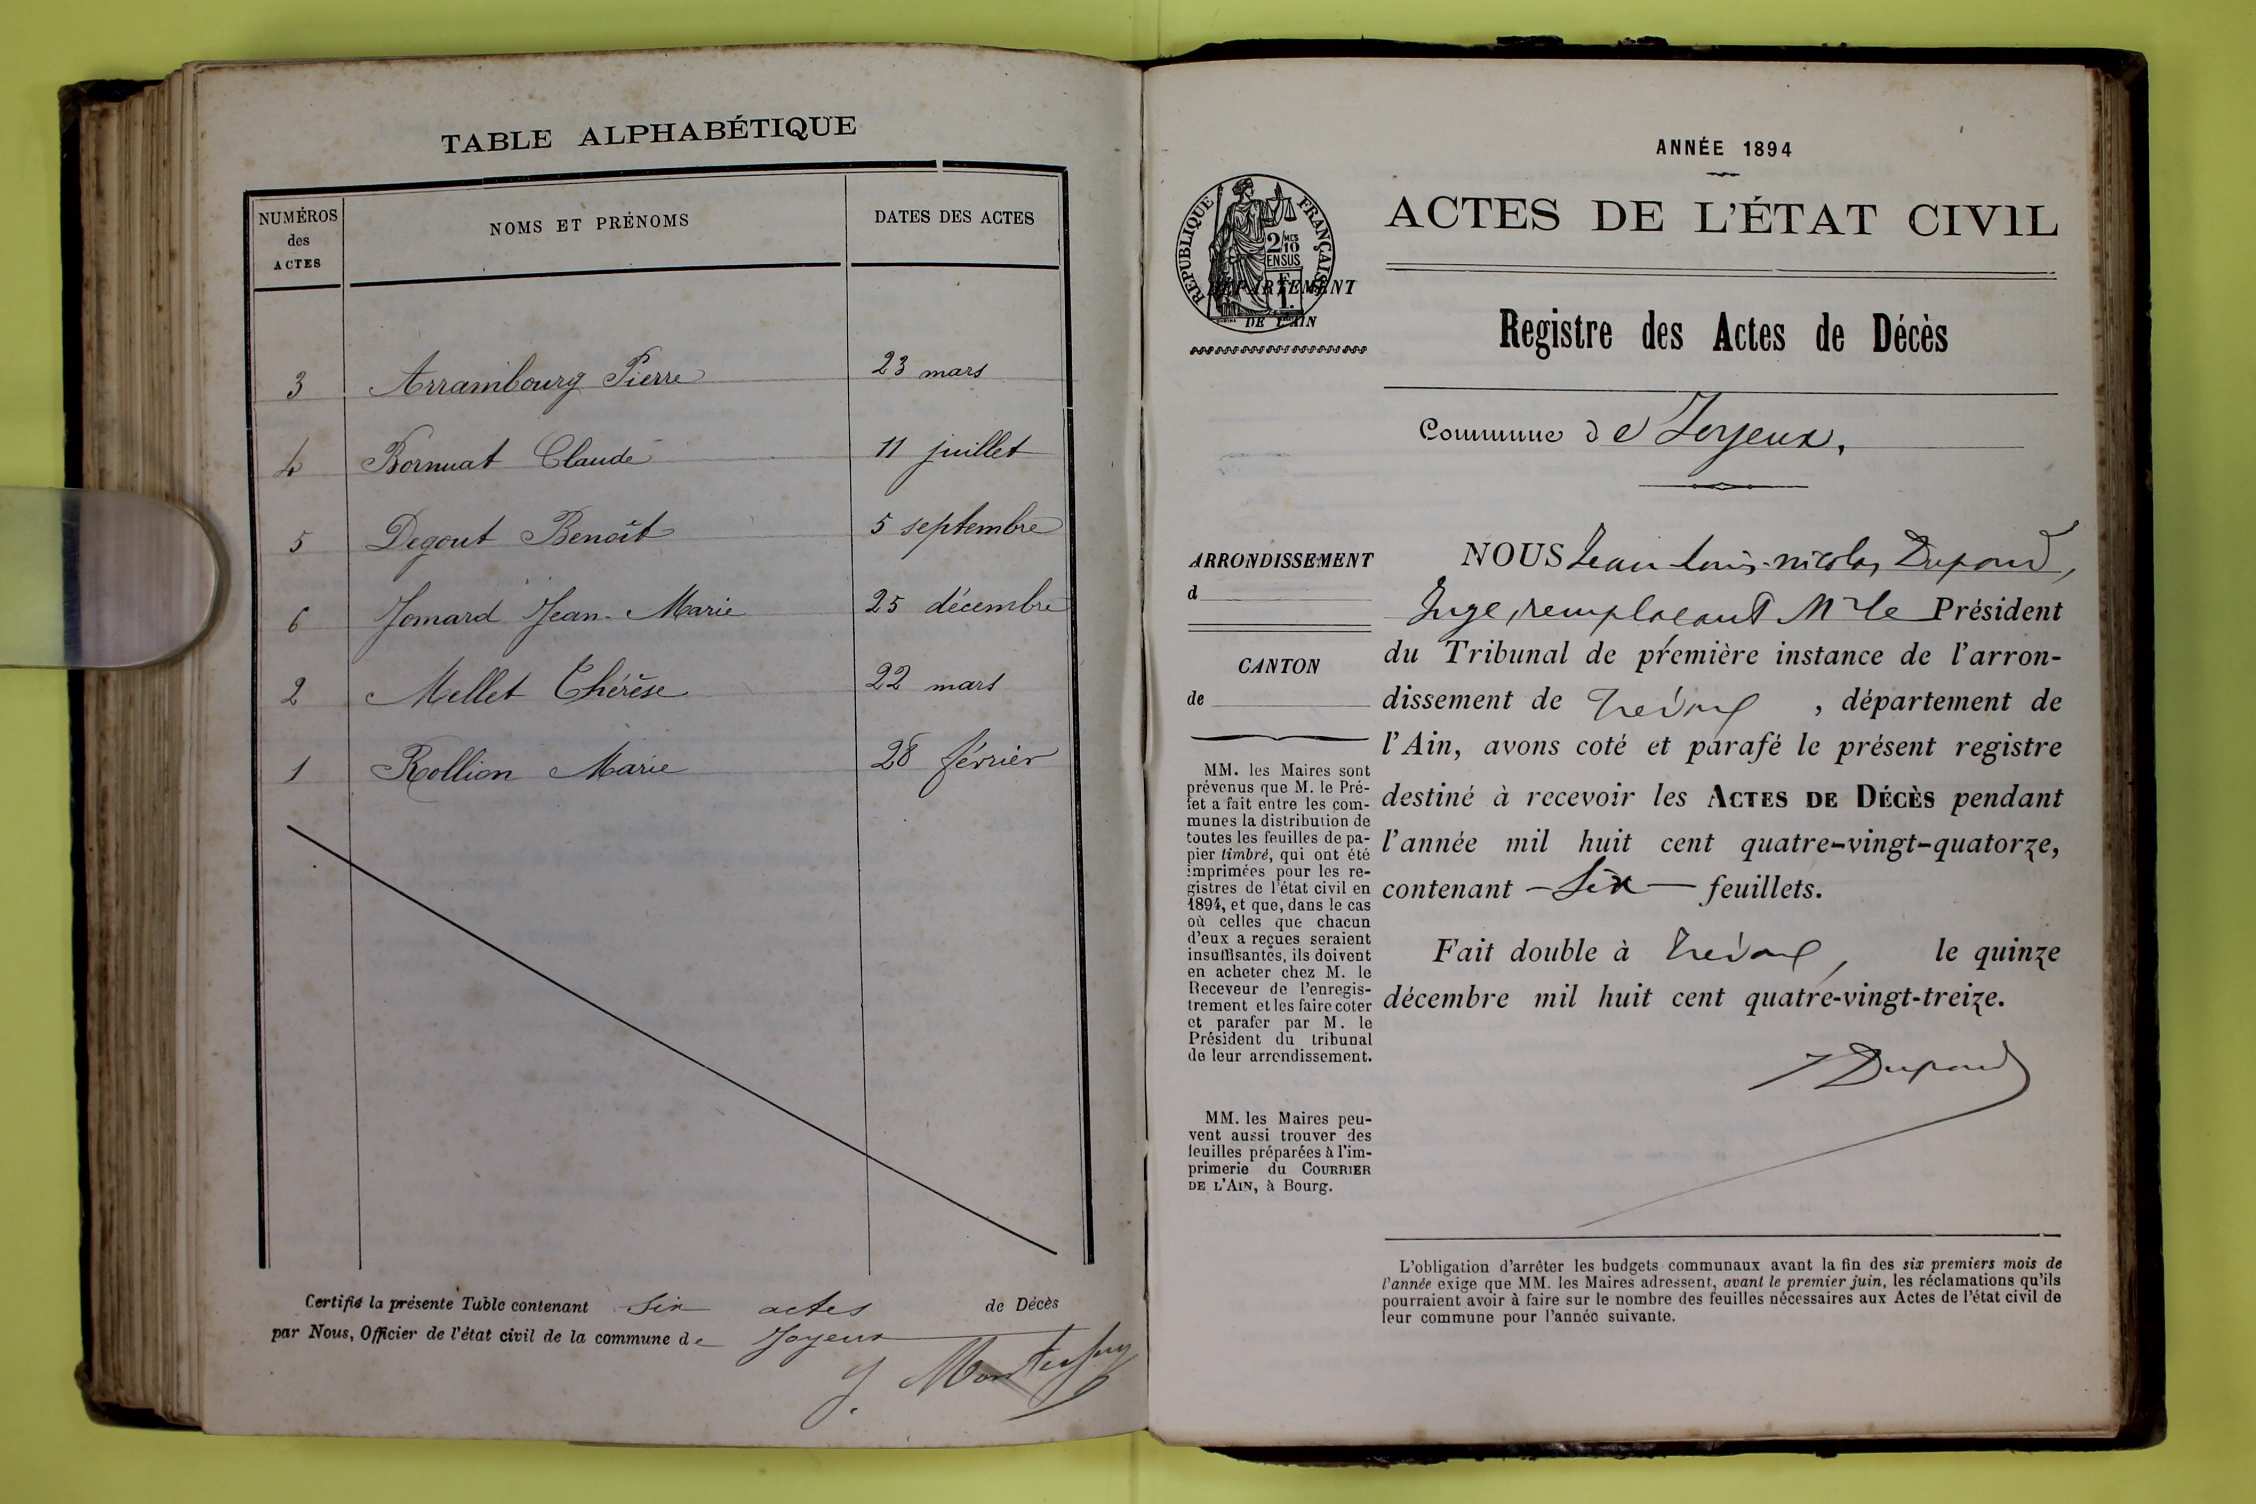 TABLE ALPHABÉTIQUE
NUMÉROS
des
ACTES
NOMS ET PRÉNOMS
DATES DES ACTES
3 Arrambourg Pierre 23 mars
4 Bornuat Claude 11 juillet
5 Degout Benoît 5 septembre
6 Jomard Jean-Marie 25 décembre
2 Mellet Thérèse 22 mars
1 Rollion Marie 28 février
Certifié la présente Table contenant six actes de Décès
par Nous, Officier de l'état civil de la commune de Joyeux
J.
ANNÉE 1894
ACTES DE L'ÉTAT CIVIL
RÉPUBLIQUE FRANÇAISE
2/10 MES
EN SUS
DÉPARTEMENT
DE L'AIN
Registre des Actes de Décès
Commune de Joyeux,
ARRONDISSEMENT
d
CANTON
de
MM. les Maires sont
prévenus que M. le Pré-
fet a fait entre les com-
munes la distribution de
toutes les feuilles de pa-
pier timbré, qui ont été
imprimées pour les re-
gistres de l'état civil en
1894, et que, dans le cas
où celles que chacun
d'eux a reçues seraient
insuffisantes, ils doivent
en acheter chez M. le
Receveur de l'enregis-
trement et les faire coter
et parafer par M. le
Président du tribunal
de leur arrondissement.
MM. les Maires peu-
vent aussi trouver des
feuilles préparées à l'im-
primerie du COURRIER
DE L'AIN, à Bourg.
NOUS Jean Louis-nicolas Dupond,
Juge, remplaçant Mr le Président
du Tribunal de première instance de l'arron-
dissement de Trévoux, département de
l'Ain, avons coté et parafé le présent registre
destiné à recevoir les ACTES DE DÉCÈS pendant
l'année mil huit cent quatre-vingt-quatorze,
contenant - Six - feuillets.
Fait double à Trévoux, le quinze
décembre mil huit cent quatre-vingt-treize.
Dupond
L'obligation d'arrêter les budgets communaux avant la fin des six premiers mois de
l'année exige que MM. les Maires adressent, avant le premier juin, les réclamations qu'ils
pourraient avoir à faire sur le nombre des feuilles nécessaires aux Actes de l'état civil de
leur commune pour l'année suivante.